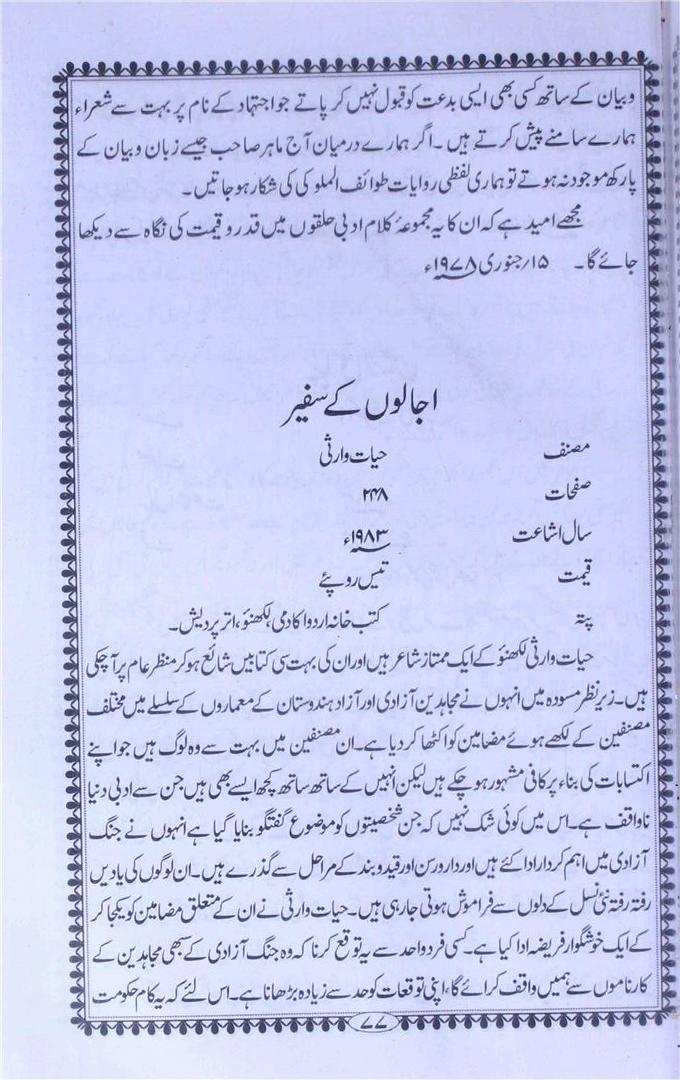 و بیان کے ساتھ کسی بھی ایسی بدعت کو قبول نہیں کر پاتے جو اجتہاد کے نام پر بہت سے شعراء
ہمارے سامنے پیش کرتے ہیں۔ اگر ہمارے درمیان آج ماہر صاحب جیسے زبان و بیان کے
پارکھ موجود نہ ہوتے تو ہماری لفظی روایات طوائف الملوکی کی شکار ہو جاتیں۔
مجھے امید ہے کہ ان کا یہ مجموعۂ کلام ادبی حلقوں میں قدر و قیمت کی نگاہ سے دیکھا
جائے گا۔ ۱۵؍ جنوری ۱۹۷۸ء
اجالوں کے سفیر
مصنف حیات وارثی
صفحات ۲۴۸
سال اشاعت ۱۹۸۳ء
قیمت تیس روپئے
پتہ کتب خانہ اردو اکادمی، لکھنؤ، اتر پردیش۔
حیات وارثی لکھنؤ کے ایک ممتاز شاعر ہیں اور ان کی بہت سی کتابیں شائع ہو کر منظر عام پر آچکی
ہیں۔ زیر نظر مسودہ میں انہوں نے مجاہدین آزادی اور آزاد ہندوستان کے معماروں کے سلسلے میں مختلف
مصنفین کے لکھے ہوئے مضامین کو اکٹھا کر دیا ہے۔ ان مصنفین میں بہت سے وہ لوگ ہیں جو اپنے
اکتسابات کی بناء پر کافی مشہور ہو چکے ہیں لیکن انہیں کے ساتھ ساتھ کچھ ایسے بھی ہیں جن سے ادبی دنیا
ناواقف ہے۔ اس میں کوئی شک نہیں کہ جن شخصیتوں کو موضوع گفتگو بنایا گیا ہے انہوں نے جنگ
آزادی میں اہم کردار ادا کئے ہیں اور دار و رسن اور قید و بند کے مراحل سے گذرے ہیں۔ ان لوگوں کی یادیں
رفتہ رفتہ نئی نسل کے دلوں سے فراموش ہوتی جا رہی ہیں۔ حیات وارثی نے ان کے متعلق مضامین کو یکجا کر
کے ایک خوشگوار فریضہ ادا کیا ہے۔ کسی فرد واحد سے یہ توقع کرنا کہ وہ جنگ آزادی کے سبھی مجاہدین کے
کارناموں سے ہمیں واقف کرائے گا، اپنی توقعات کو حد سے زیادہ بڑھانا ہے۔ اس لئے کہ یہ کام حکومت
۷۷